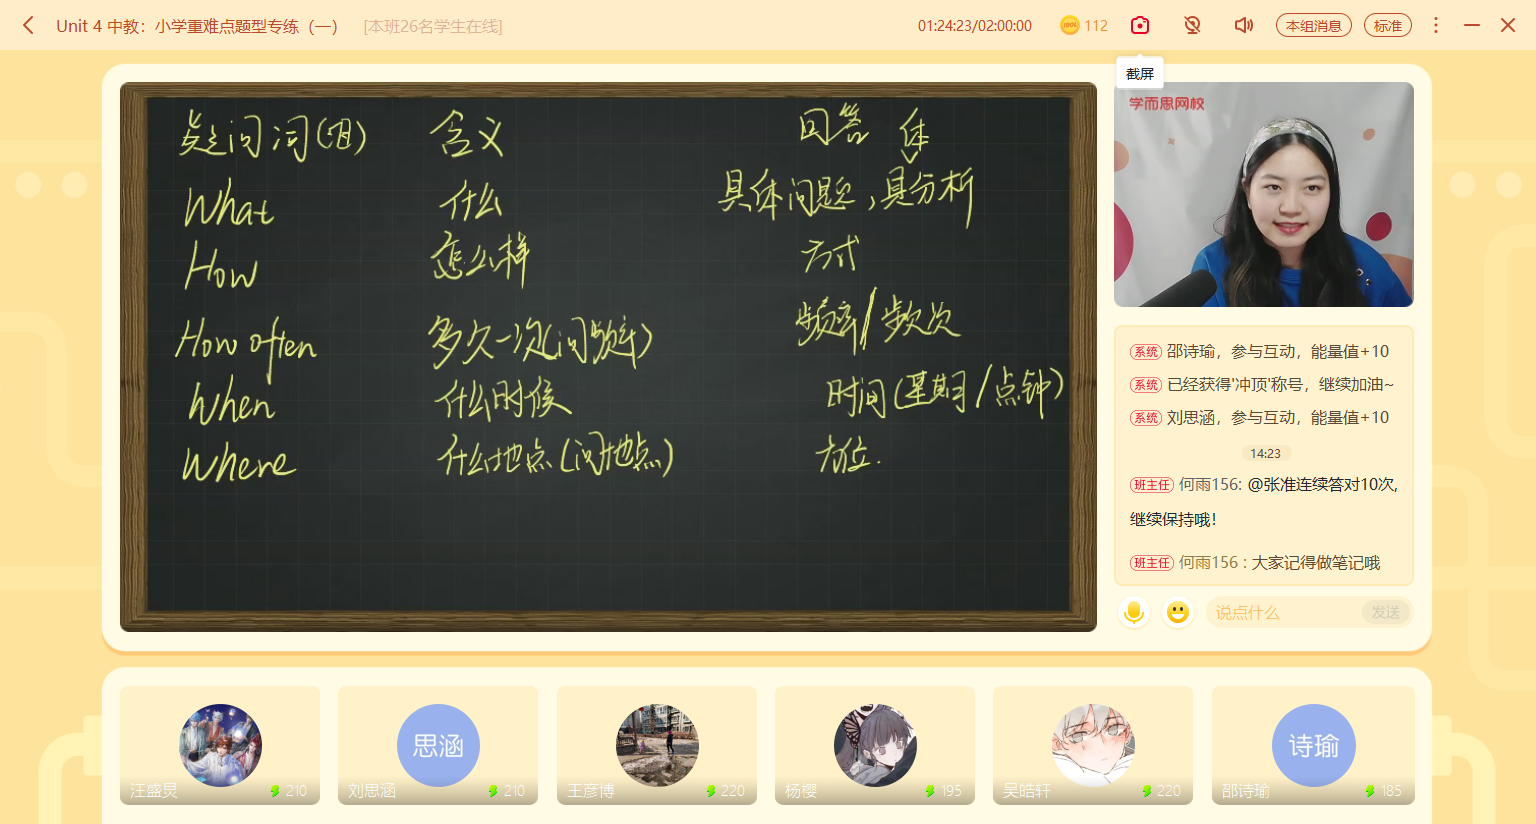 Unit 4 中教：小学重难点题型专练（一） [本班26名学生在线] 01:24:23/02:00:00 112 本组消息 标准
截屏
学而思网校
疑问词(组) 含义 回答 体
What 什么 具体问题，具分析
How 怎么样 方式
How often 多久一次(问频率) 频率/频次
When 什么时候 时间(星期/点钟)
Where 什么地点(问地点) 方位.
系统 邵诗瑜，参与互动，能量值+10
系统 已经获得'冲顶'称号，继续加油~
系统 刘思涵，参与互动，能量值+10
14:23
班主任 何雨156: @张准连续答对10次,
继续保持哦!
班主任 何雨156 : 大家记得做笔记哦
说点什么 发送
思涵 诗瑜
汪盛炅 210 刘思涵 210 王彦博 220 杨樱 195 吴皓轩 220 邵诗瑜 185